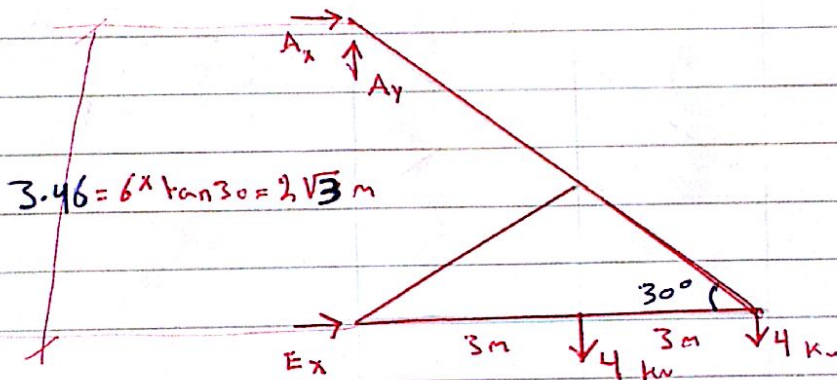 Ax
Ay
3.46 = 6 x tan30 = 2√3 m
30°
Ex
3m
4 kN
3m
4 kN